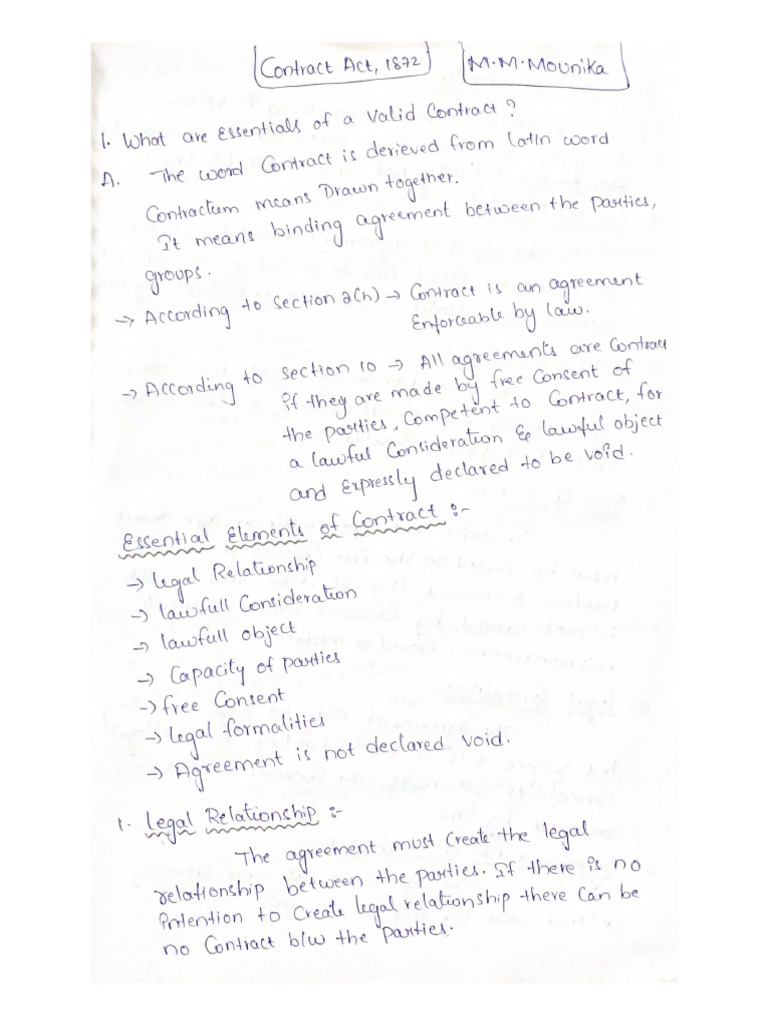 Contract Act, 1872 M.M.Mounika
1. What are Essentials of a Valid Contract?
A. The word Contract is derieved from latin word
Contractum means Drawn together.
It means binding agreement between the parties,
groups.
→ According to section 2(h) → Contract is an agreement
Enforceable by law.
→ According to section 10 → All agreements are Contract
if they are made by free Consent of
the parties, Competent to Contract, for
a lawful Consideration & lawful object
and Expressly declared to be void.
Essential Elements of Contract :-
→ legal Relationship
→ lawfull Consideration
→ lawfull object
→ Capacity of parties
→ free Consent
→ legal formalities
→ Agreement is not declared void.
1. Legal Relationship :-
The agreement must Create the legal
relationship between the parties. If there is no
Intention to Create legal relationship there Can be
no Contract b/w the parties.